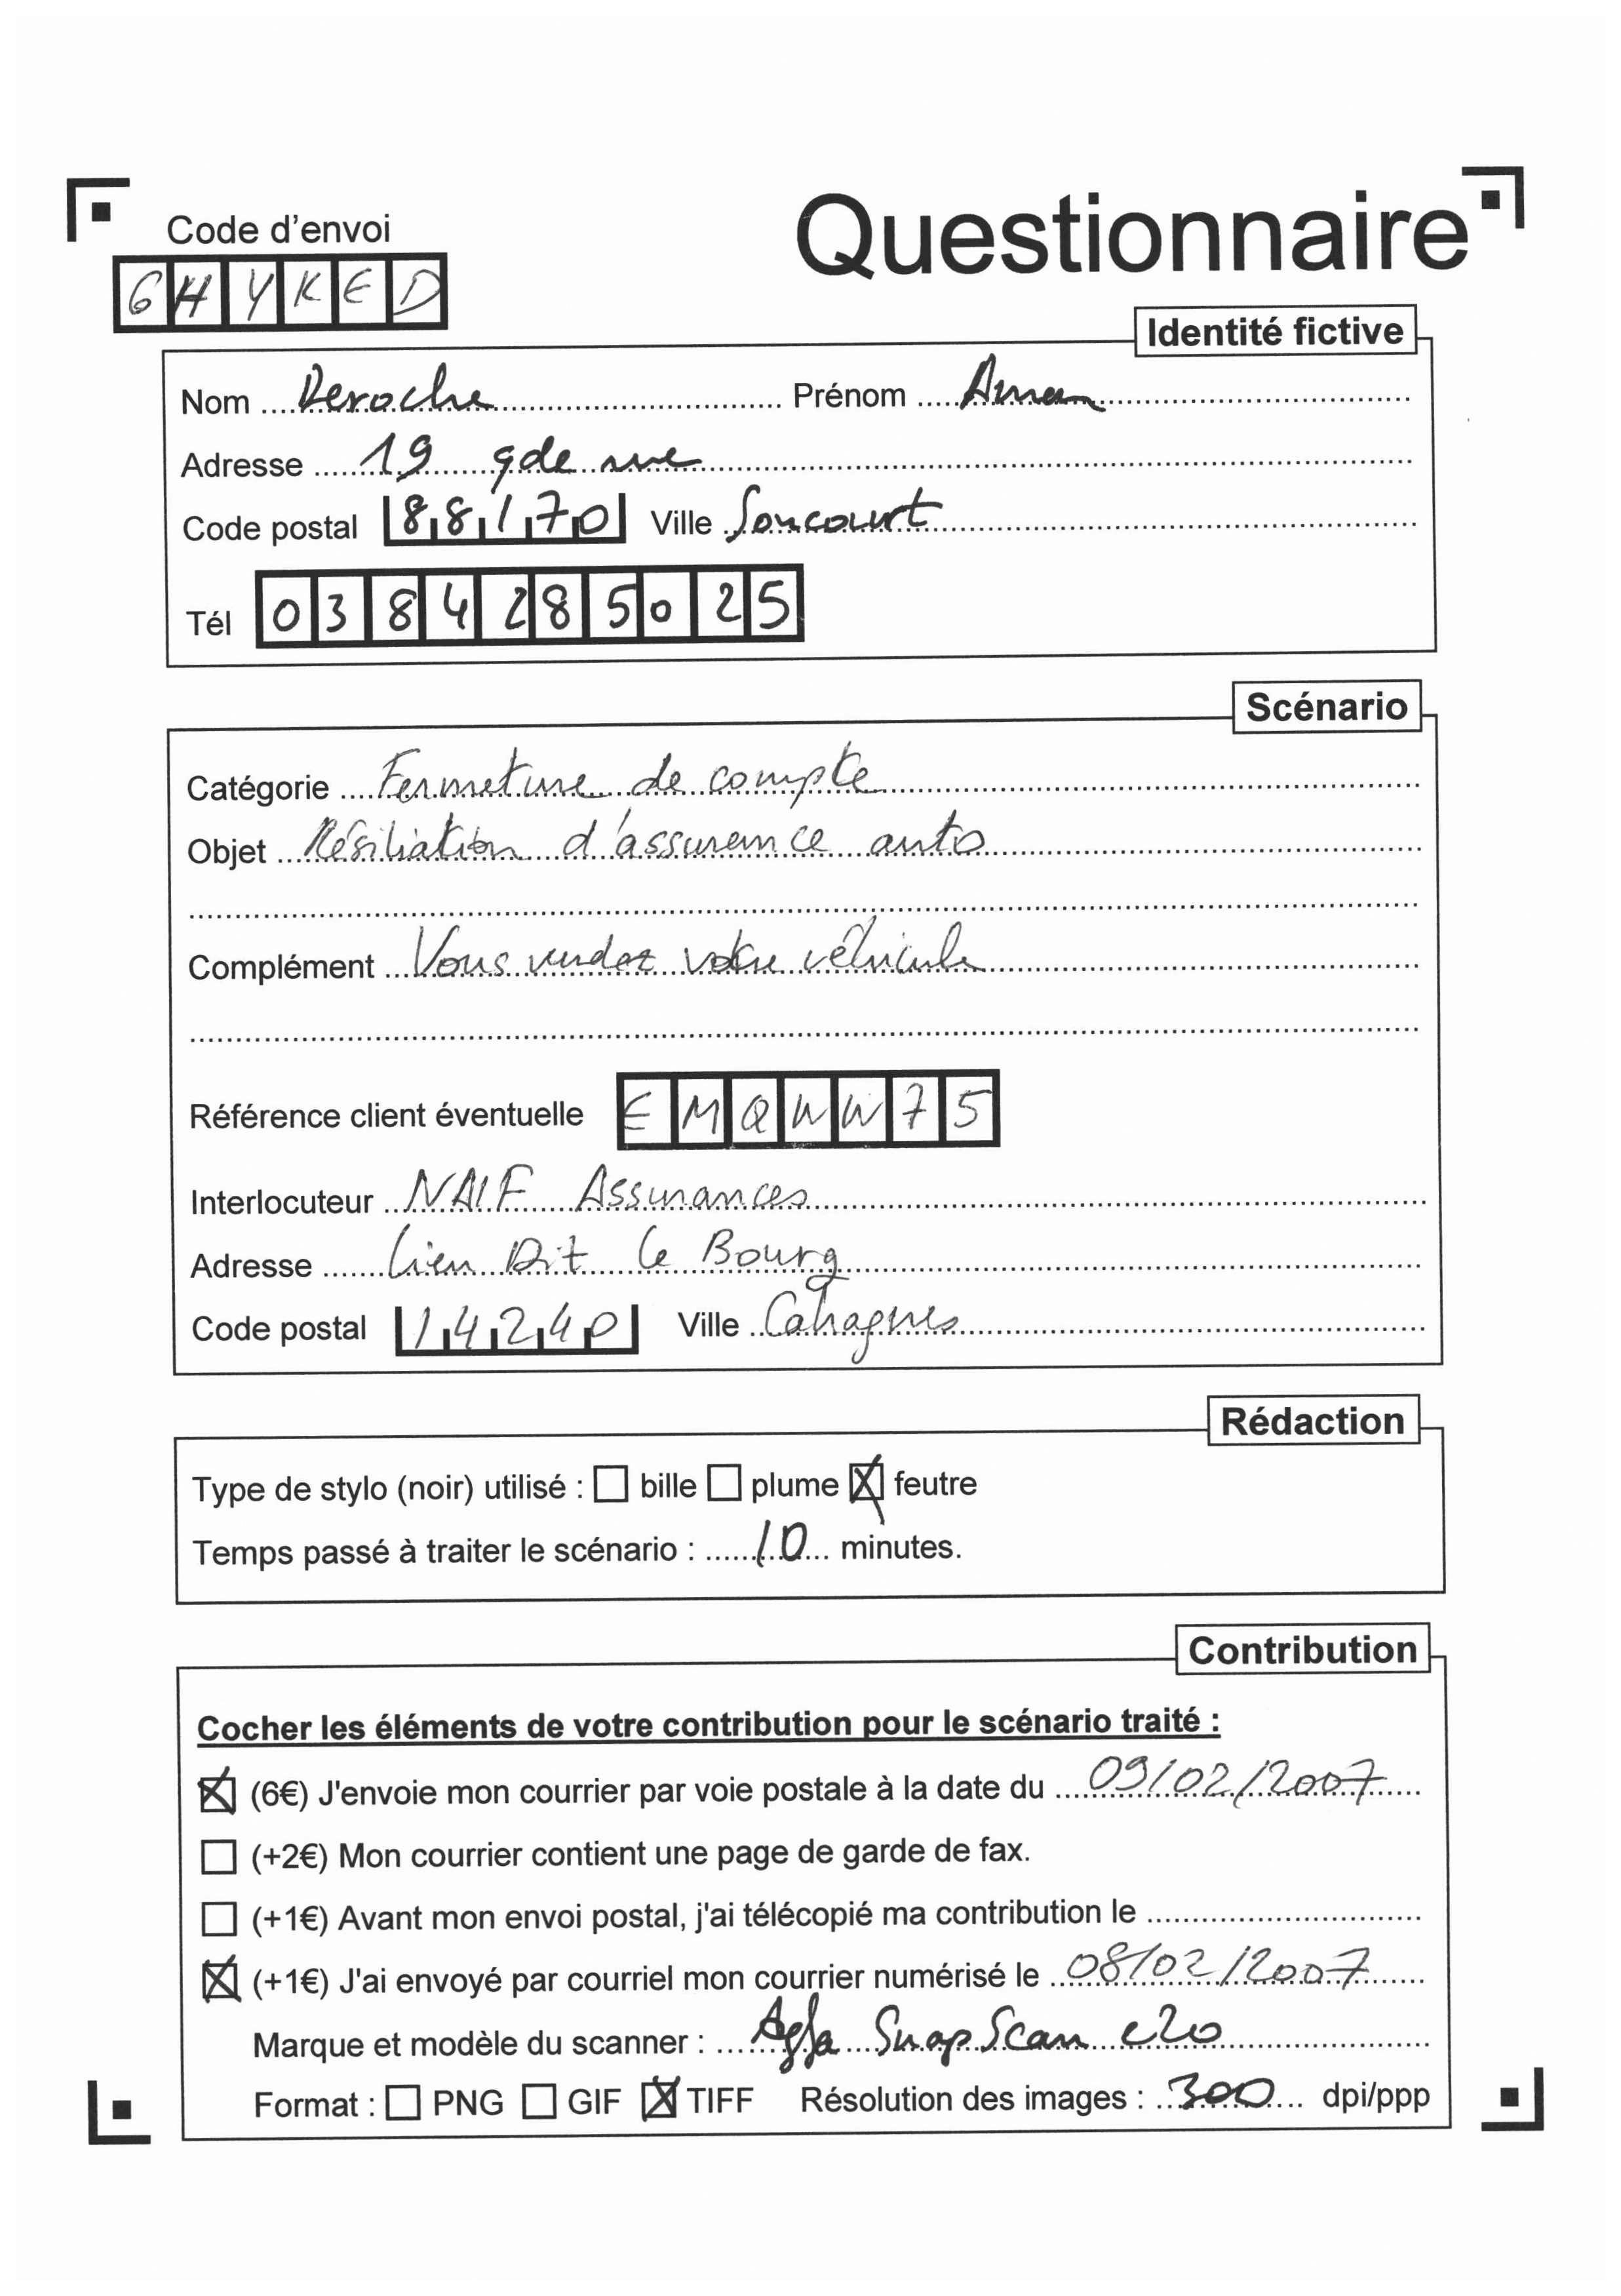 Questionnaire
Code d'envoi
GHYKED
Identité fictive
Nom Deroche Prénom
Adresse 19 gde rue
Code postal 88170 Ville Soncourt
Tél 0384285025
Scénario
Catégorie Fermeture de compte
Objet Résiliation d'assurance auto
Complément Vous vendez votre véhicule
Référence client éventuelle EMQWW75
Interlocuteur NAIF Assurances
Adresse Lieu Dit Le Bourg
Code postal 14240 Ville Cahagnes
Rédaction
Type de stylo (noir) utilisé : bille plume feutre
Temps passé à traiter le scénario : 10 minutes.
Contribution
Cocher les éléments de votre contribution pour le scénario traité :
(6€) J'envoie mon courrier par voie postale à la date du 09/02/2007
(+2€) Mon courrier contient une page de garde de fax.
(+1€) Avant mon envoi postal, j'ai télécopié ma contribution le
(+1€) J'ai envoyé par courriel mon courrier numérisé le 08/02/2007
Marque et modèle du scanner : Agfa SnapScan e20
Format : PNG GIF TIFF Résolution des images : 300 dpi/ppp